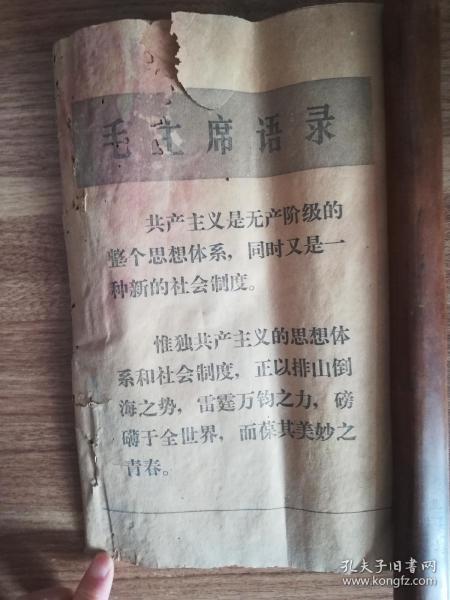 毛主席语录
共产主义是无产阶级的
整个思想体系，同时又是一
种新的社会制度。
惟独共产主义的思想体
系和社会制度，正以排山倒
海之势，雷霆万钧之力，磅
礴于全世界，而葆其美妙之
青春。
孔夫子旧书网
www.kongfz.com